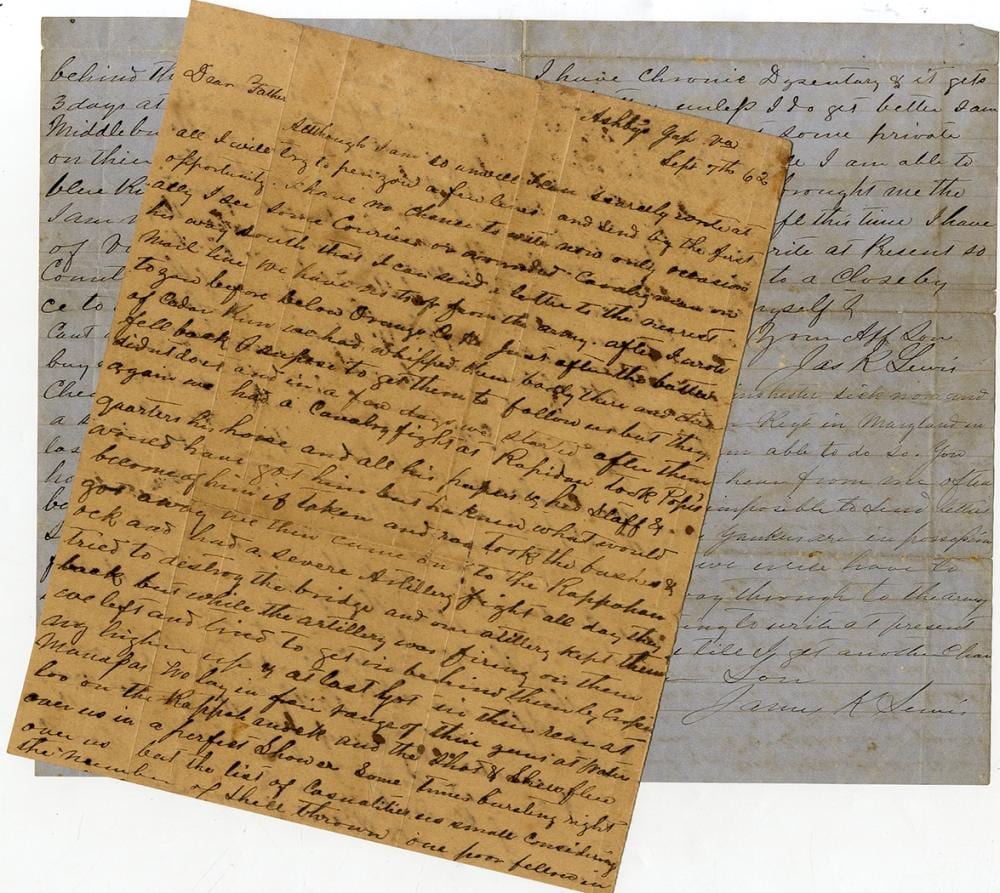 Dear Father
Ashby's Gap Va
Sept 7th 62
Although I am so unwell I can scarcely write at
all I will try to pen you a few lines and send by the first
opportunity. I have no chance to write now only occasion
ally I see some Courier or wounded Cavalryman on
his way South that I can send a letter to the nearest
mail line we have no from the army. after I wrote
to you before below Orange C.H. just after the battle
of Cedar Run we had whipped them badly then and
fell back I supose to get them to follow us but they
didnt do it and in a few days we started after them
again we had a Cavalry fight at Rapidan took Popes
quarters his horse and all his papers & his Staff &
would have got him but he knew what would
become of him if taken and ran took the bushes &
got away we then came on to the Rappohan
ock and had a severe Artillery fight all day they
tried to destroy the bridge and our artillery kept them
back but while the artillery was firing on them
we left and tried to get in behind them by Crossi
ng higher up & at last got in their rear at
Manassas We lay in fair range of their guns at Water
loo on the Rappohanock and the Shot & Shell flew
over us in a perfect Shower Some times bursting right
over us but the list of Casualities is small considering
the number of Shell thrown one poor fellow in
behind th
3 days at
Middlebu
on their
blue R
I am
of V
Count
ce to
Cant
buy
Che
a
los
ho
be
I have Chronic Dysentary & it gets
unless I do get better I am
some private
I am able to
brought me the
this time I have
write at Present so
to a Close by
myself &
Your Aff Son
Jas K Lewis
sick now and
Regt in Maryland in
am able to do so. You
hear from me often
impossible to send letters
yankees are in possession
we were have to
way through to the army
ing to write at present
till I get another Chan
Son
James K Lewis